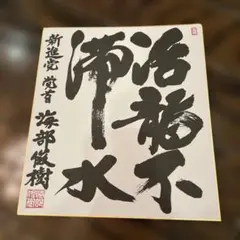 活龍不
滞水
新進党 党首 海部俊樹